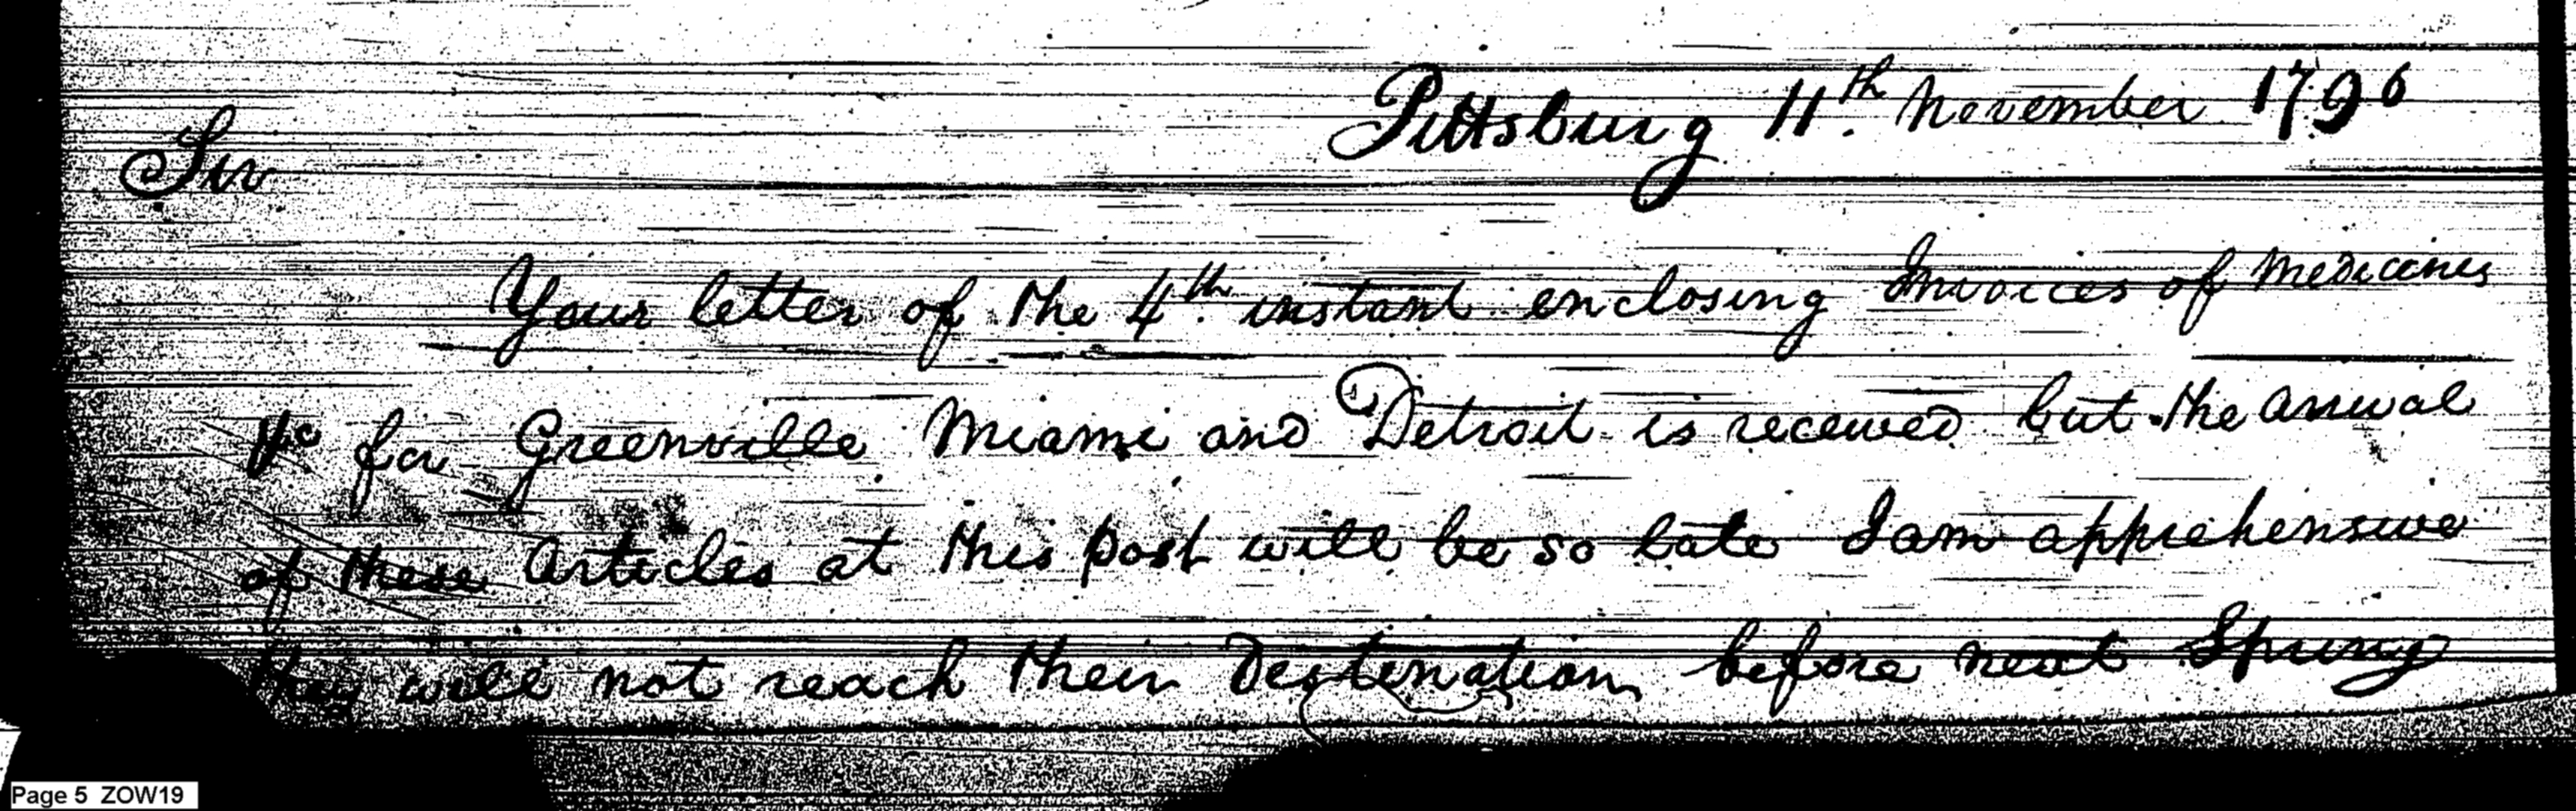 Pittsburg 11th. November 1796
Sir
Your letter of the 4th. instant enclosing Invoices of Medicines
&c for Greenville Miami and Detroit is received but the arrival
of these Articles at this post will be so late I am apprehensive
they will not reach their Destination before next Spring
Page 5 ZOW19